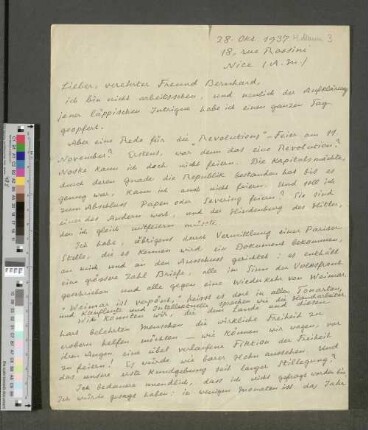 28. Okt. 1937
18, rue Rossini
Nice (A.M.)
Lieber, verehrter Freund Bernhard,
ich bin nicht arbeitsscheu, und neulich der Aufklärung
jener läppischen Intrigue habe ich einen ganzen Tag
geopfert.
Aber eine Rede für die "Revolutions"-Feier am 9.
November? Erstens, war denn das eine Revolution?
Noske kann ich doch nicht feiern. Die Kapitalsmächte,
durch deren Gnade die Republik bestanden hat bis es
genug war, kann ich auch nicht feiern. Und soll ich
zum Abschluss Papen oder Severing feiern? Sie sind
einer des Andern wert, und der Hindenburg des Hitler,
den ich gleich mitfeiern müsste.
Ich habe, übrigens durch Vermittlung einer Pariser
Stelle, die es kennen wird, ein Dokument bekommen,
es wird auch an den Ausschuss gerichtet: es enthält
eine grosse Zahl Briefe, alle im Sinn der Volksfront
geschrieben und alle gegen eine Wiederkehr von Weimar.
"Weimar ist verpönt," heisst es dort in allen Tonarten,
und Kämpfende und Intellektuelle sprechen wie die Handarbeiter.
Wie könnten wir, die dem Lande und diesen
hart belehrten Menschen die wirkliche Freiheit zu
erobern helfen möchten — wie können wir wagen, vor
ihren Augen eine übel verlaufene Fiktion der Freiheit
zu feiern? Es würde wie barer Hohn aussehen. Und
das unsere erste Kundgebung seit langer Stilllegung?
Ich bedaure unendlich, dass ich nicht gefragt worden bin.
Ich würde gesagt haben: in wenigen Monaten ist das Jahr